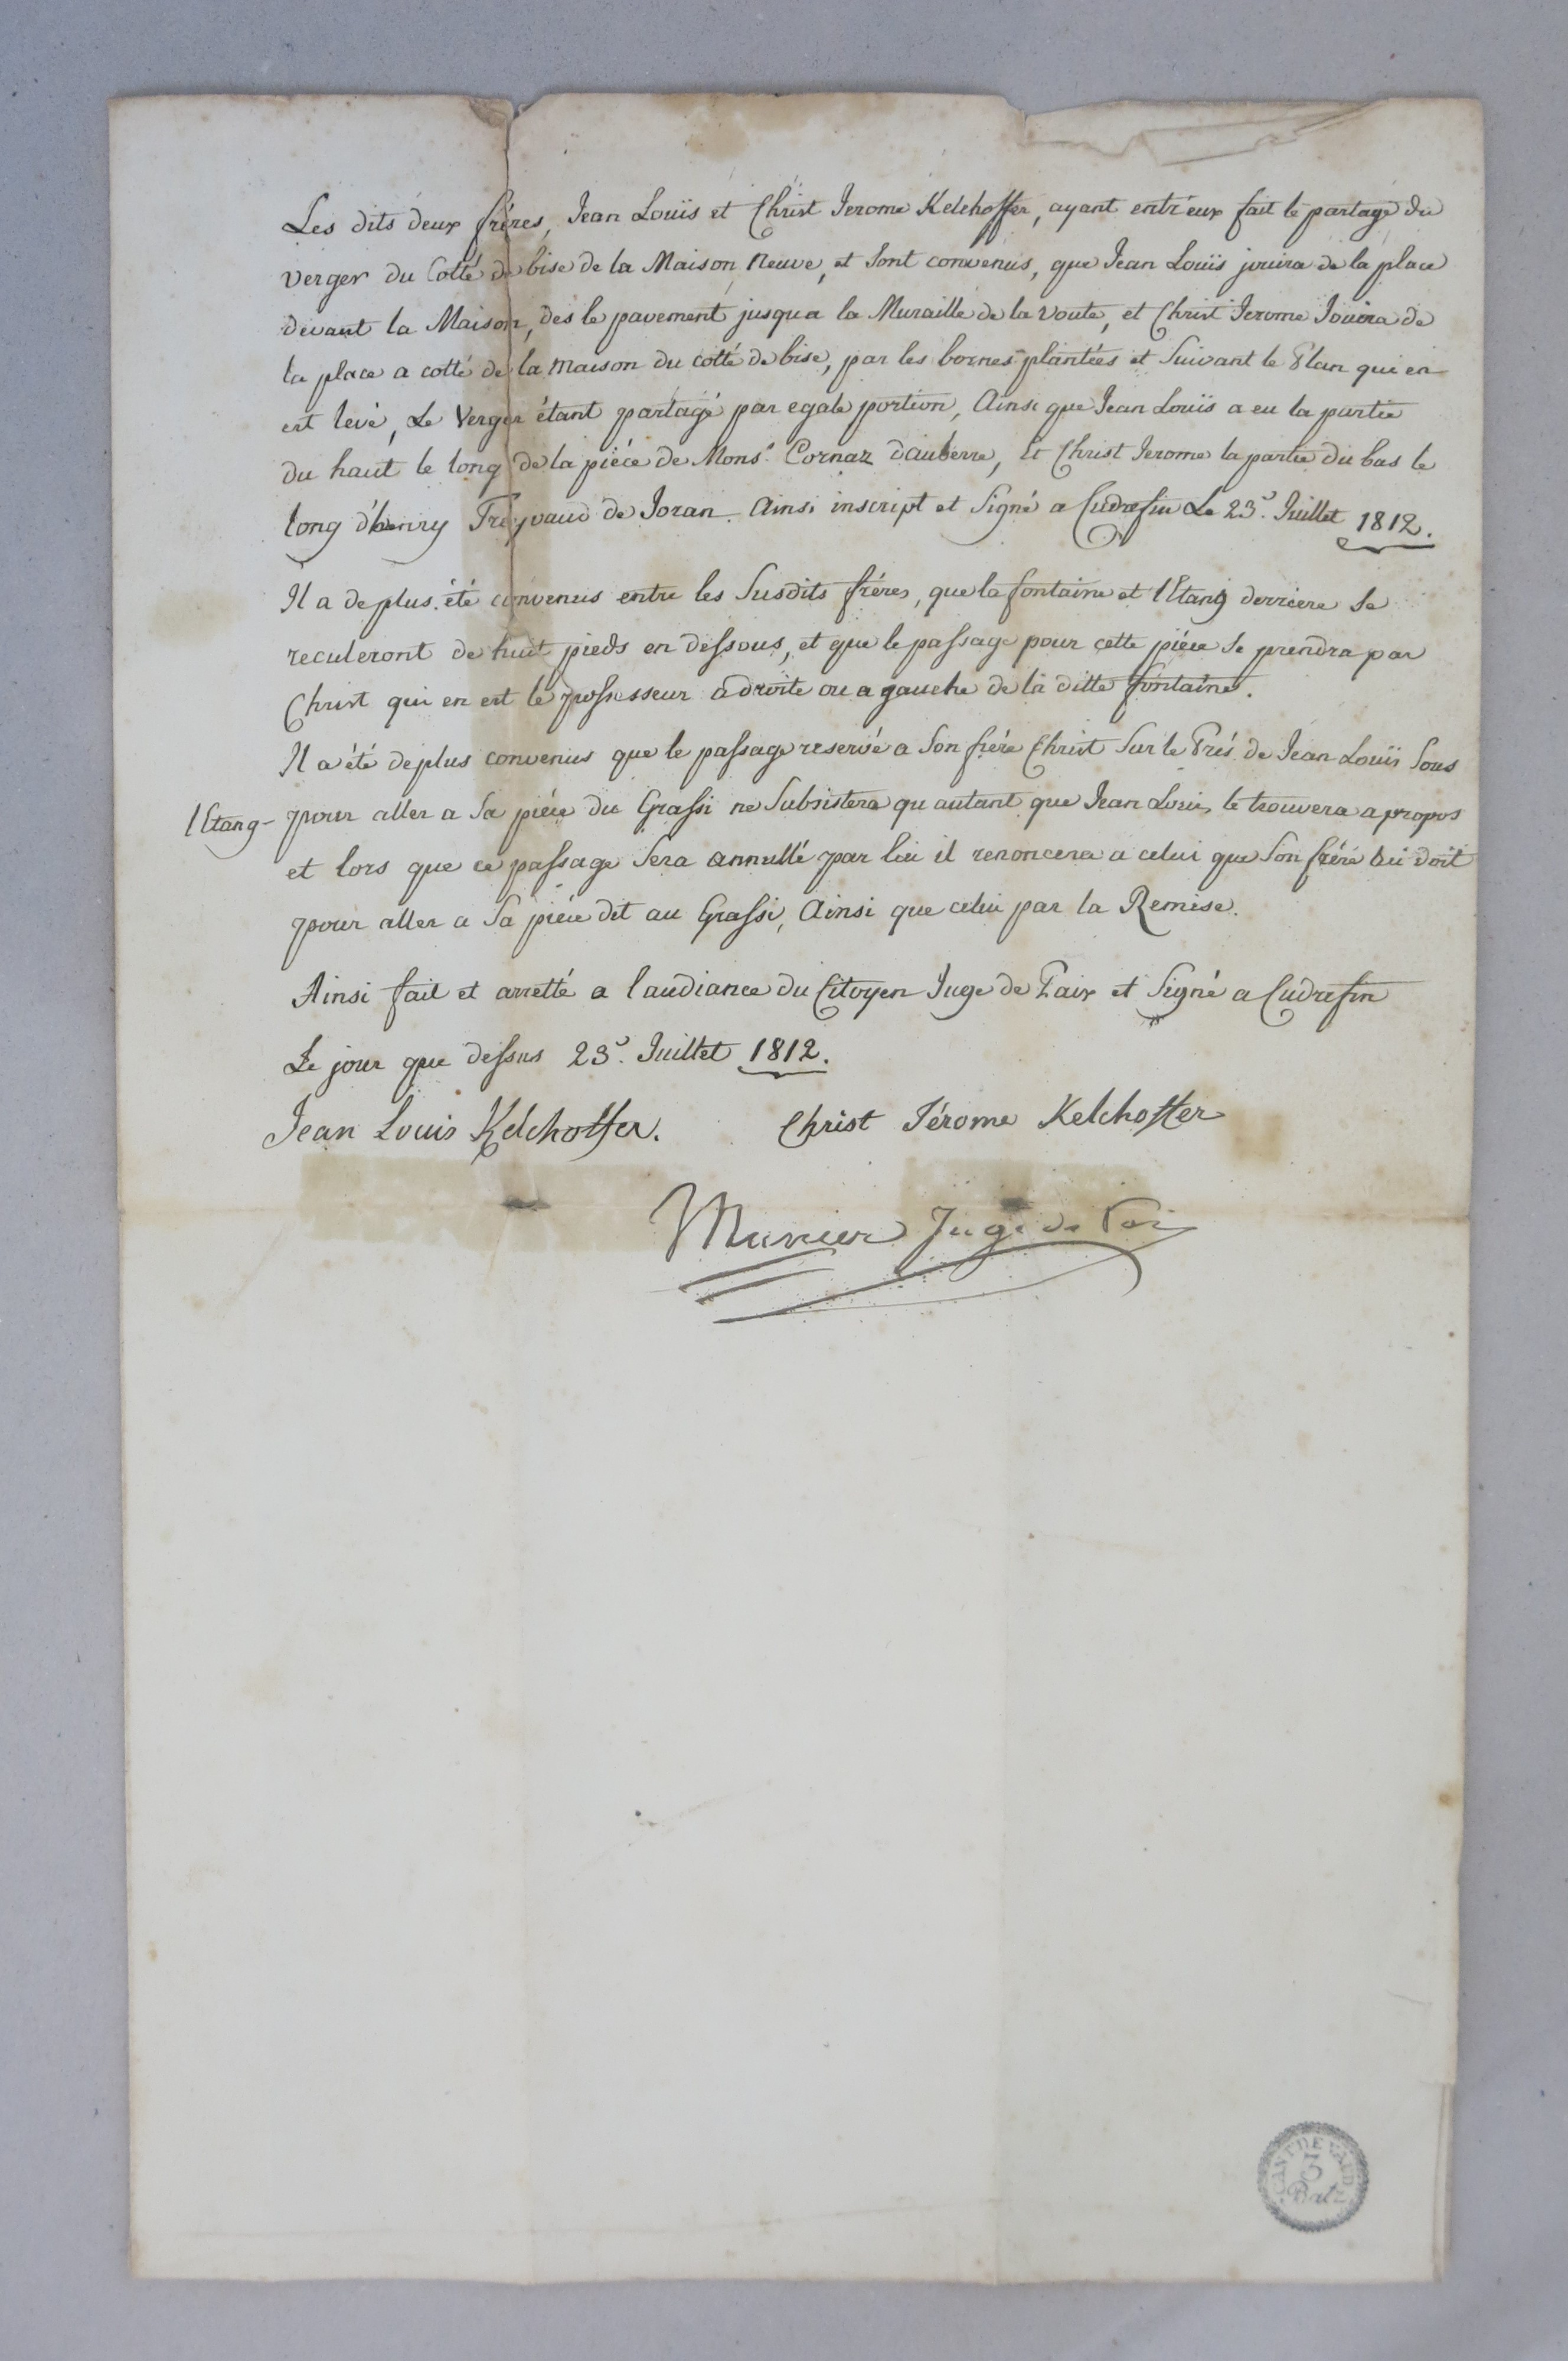 Les dits deux fréres, Jean Louïs et Christ Jerome Kelchoffer, ayant entr'eux fait le partage du
verger du Cotté de bise de la Maison Neuve, et sont convenus, que Jean Louïs jouira de la place
devant la Maison, dès le pavement jusqu a la Muraille de la voute, et Christ Jerome Jouira de
la place a cotté de la maison du cotté de bise, par les bornes plantées et Suivant le Plan qui en
est levé, Le Verger étant partagé par egale portion, Ainsi que Jean Louïs a eu la partie
du haut le long de la piéce de Monsr. Cornaz dauberre, Et Christ Jerome la partie du bas le
long d'henry Treyvaud de Joran. Ainsi inscript et Signé a Cudrefin Le 23e. Juillet 1812.
Il a de plus été convenus entre les Susdits fréres, que la fontaine et l'Etang derriere Se
reculeront de huit pieds en dessous, et que le passage pour cette piéce Se prendra par
Christ qui en est le possesseur a droite ou a gauche de la ditte fontaine.
Il a été de plus convenus que le passage reservé a Son frére Christ Sur le Prés de Jean Louïs Sous
l'Etang- pour aller a Sa piéce du Grassi ne Subsistera qu autant que Jean Louis le trouvera a propos
et lors que ce passage Sera annullé par lui il renoncera a celui que Son frére lui doit
pour aller a Sa piéce dit au Grassi, Ainsi que celui par la Remise.
Ainsi fait et arretté a laudiance du Citoyen Juge de Paix et Signé a Cudrefin
Le jour que dessus 23e. Juillet 1812.
Jean Louis Kelchoffer. Christ Jérome Kelchoffer
Munier Juge de Paix
CANT DE VAUD
3
Batz